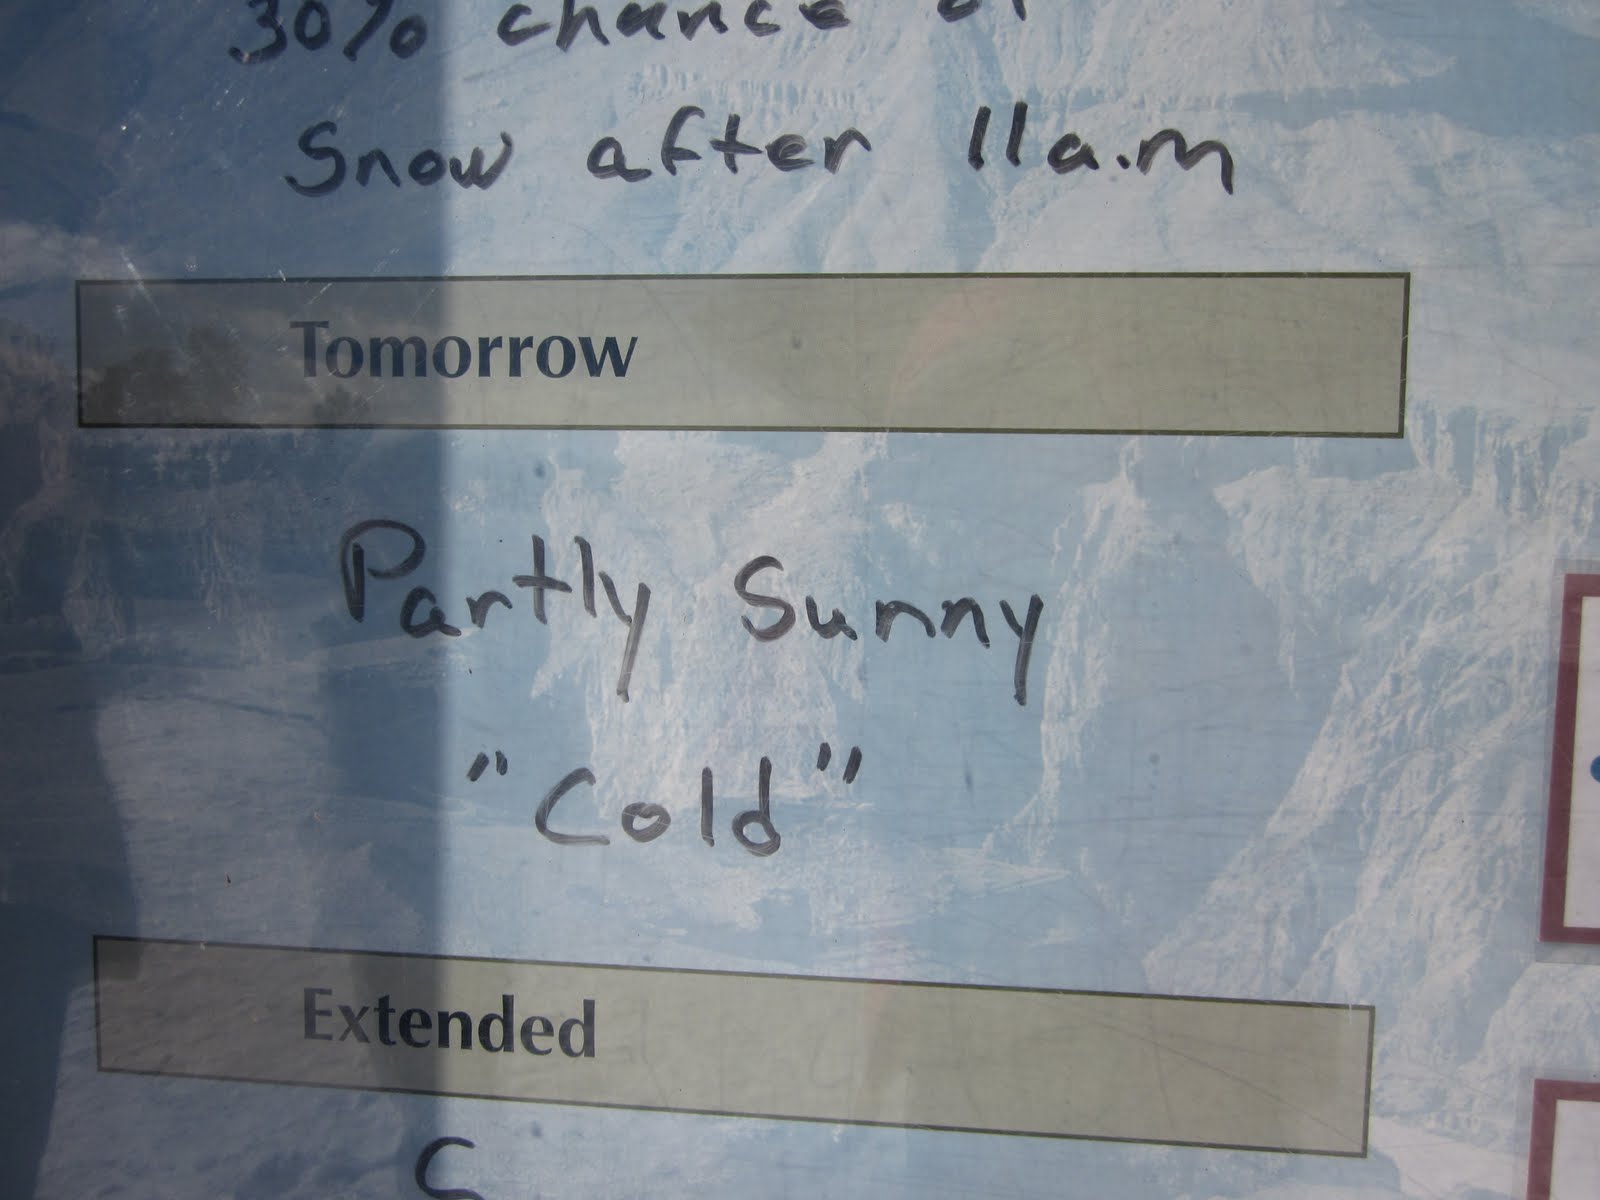 30% chance of
Snow after 11a.m
Tomorrow
Partly Sunny
"Cold"
Extended